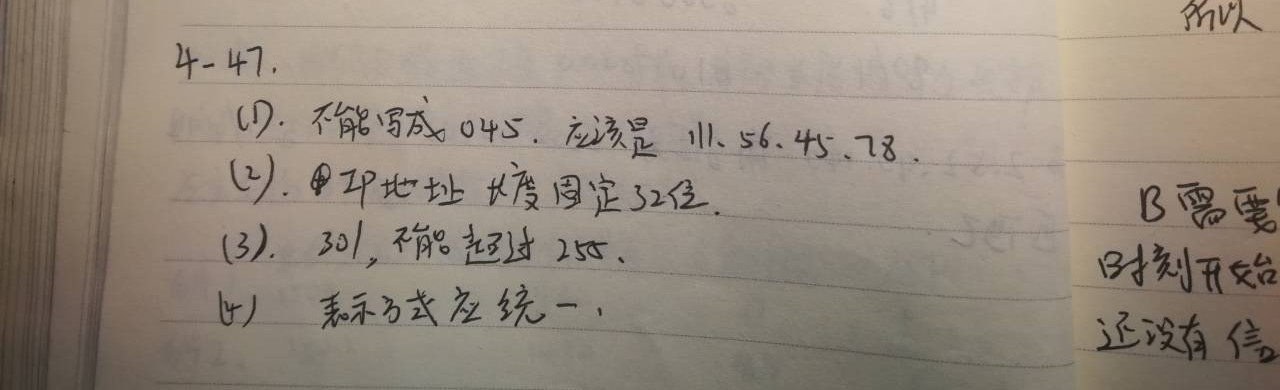 4-47.
(1). 不能写成 045. 应该是 111.56.45.78.
(2). IP地址 长度固定32位.
(3). 301, 不能超过 255.
(4) 表示方式应统一.
所以
B需要
B时刻开始
还没有信